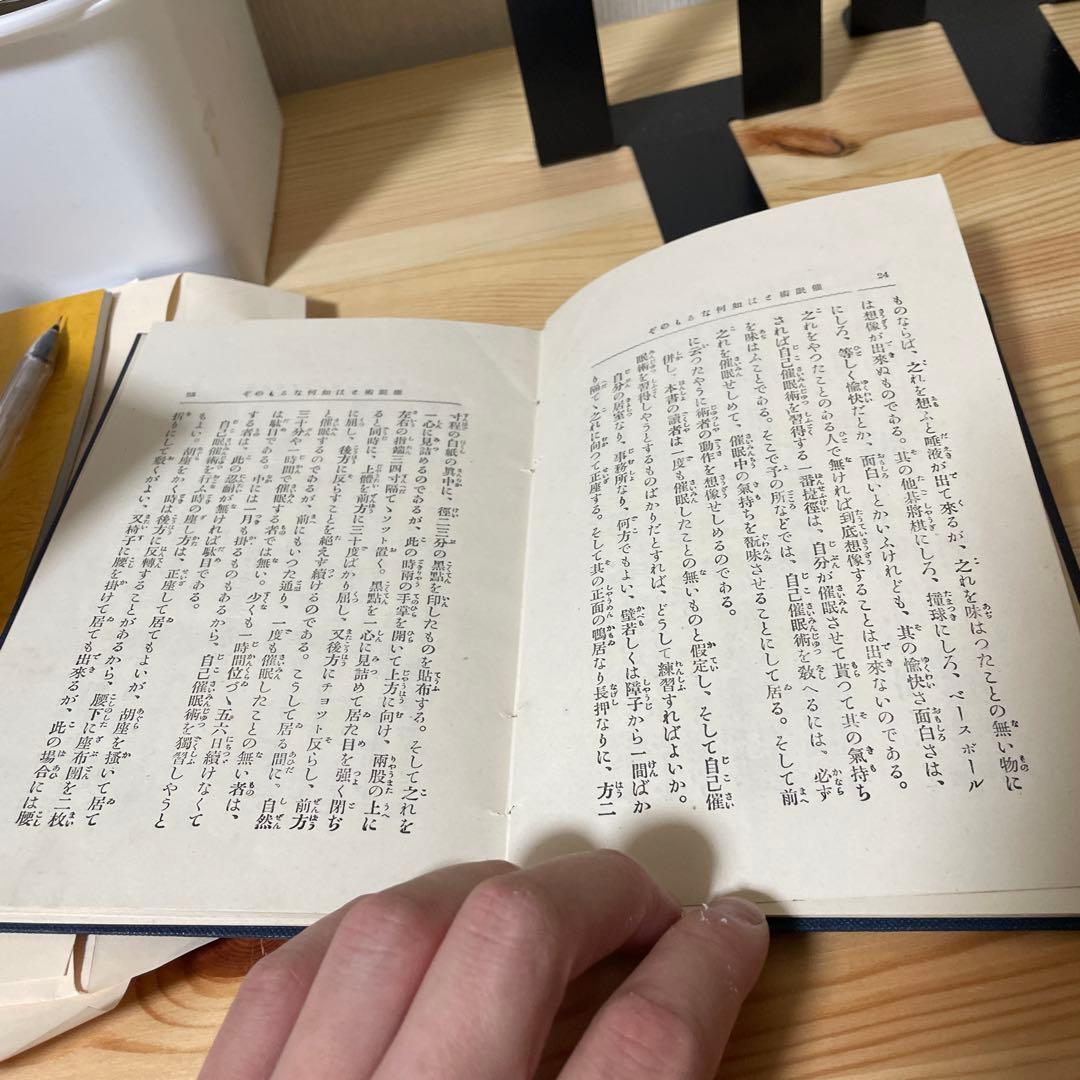 24
催眠術とは如何なるものぞ
ものならば、之れを想ふと唾液が出て來るが、之れを味はつたことの無い物に
は想像が出來ぬものである。其の他碁將棋にしろ、撞球にしろ、ベースボール
にしろ、等しく愉快だとか、面白いとかいふけれども、其の愉快さ面白さは、
之れをやつたことのある人で無ければ到底想像することは出來ないのである。
されば自己催眠術を習得する一番捷徑は、自分が催眠させて貰つて其の氣持ち
を味はふことである。そこで予の所などでは、自己催眠術を敎へるには、必ず
之れを催眠せしめて、催眠中の氣持ちを翫味させることにして居る。そして前
に云つたやうに術者の動作を想像せしめるのである。
併し、本書の讀者は一度も催眠したことの無いものと假定し、そして自己催
眠術を習得しやうとするものばかりだとすれば、どうして練習すればよいか。
自分の居室なり、事務所なり、何方でもよい、壁若しくは障子から一間ばか
り隔て、之れに向つて正座する。そして其の正面の鴨居なり長押なりに、方二
催眠術とは如何なるものぞ
寸程の白紙の眞中に、徑二三分の黑點を印したものを貼布する。そして之れを
一心に見詰めるのであるが、此の時兩の手掌を開いて上方に向け、兩股の上に
左右の指端三四寸隔ヽソット置く。黑點を一心に見詰めて居た目を强く閉ぢ
ると同時に、上體を前方に三十度ばかり屈し、又後方にチョット反らし、前方
に屈し、後方に反らすことを絕えず續けるのである。こうして居る間に。自然
と催眠するのであるが、前にもいつた通り、一度も催眠したことの無い者は、
三十分や一時間で催眠する者では無い。少くも一時間位づヽ五六日續けなくて
は駄目である。中には一月も掛るものもあるから、自己催眠術を獨習しやうと
する者は、此の忍耐が無ければ駄目である。
自己催眠術を行ふ時の座り方は、正座して居てもよいが、胡座を搔いて居て
もよい。胡座をかく時は後方に反轉することがあるから、腰下に座布團を二枚
折りにして敷くがよい、又椅子に腰を掛けて居ても出來るが、此の場合には腰